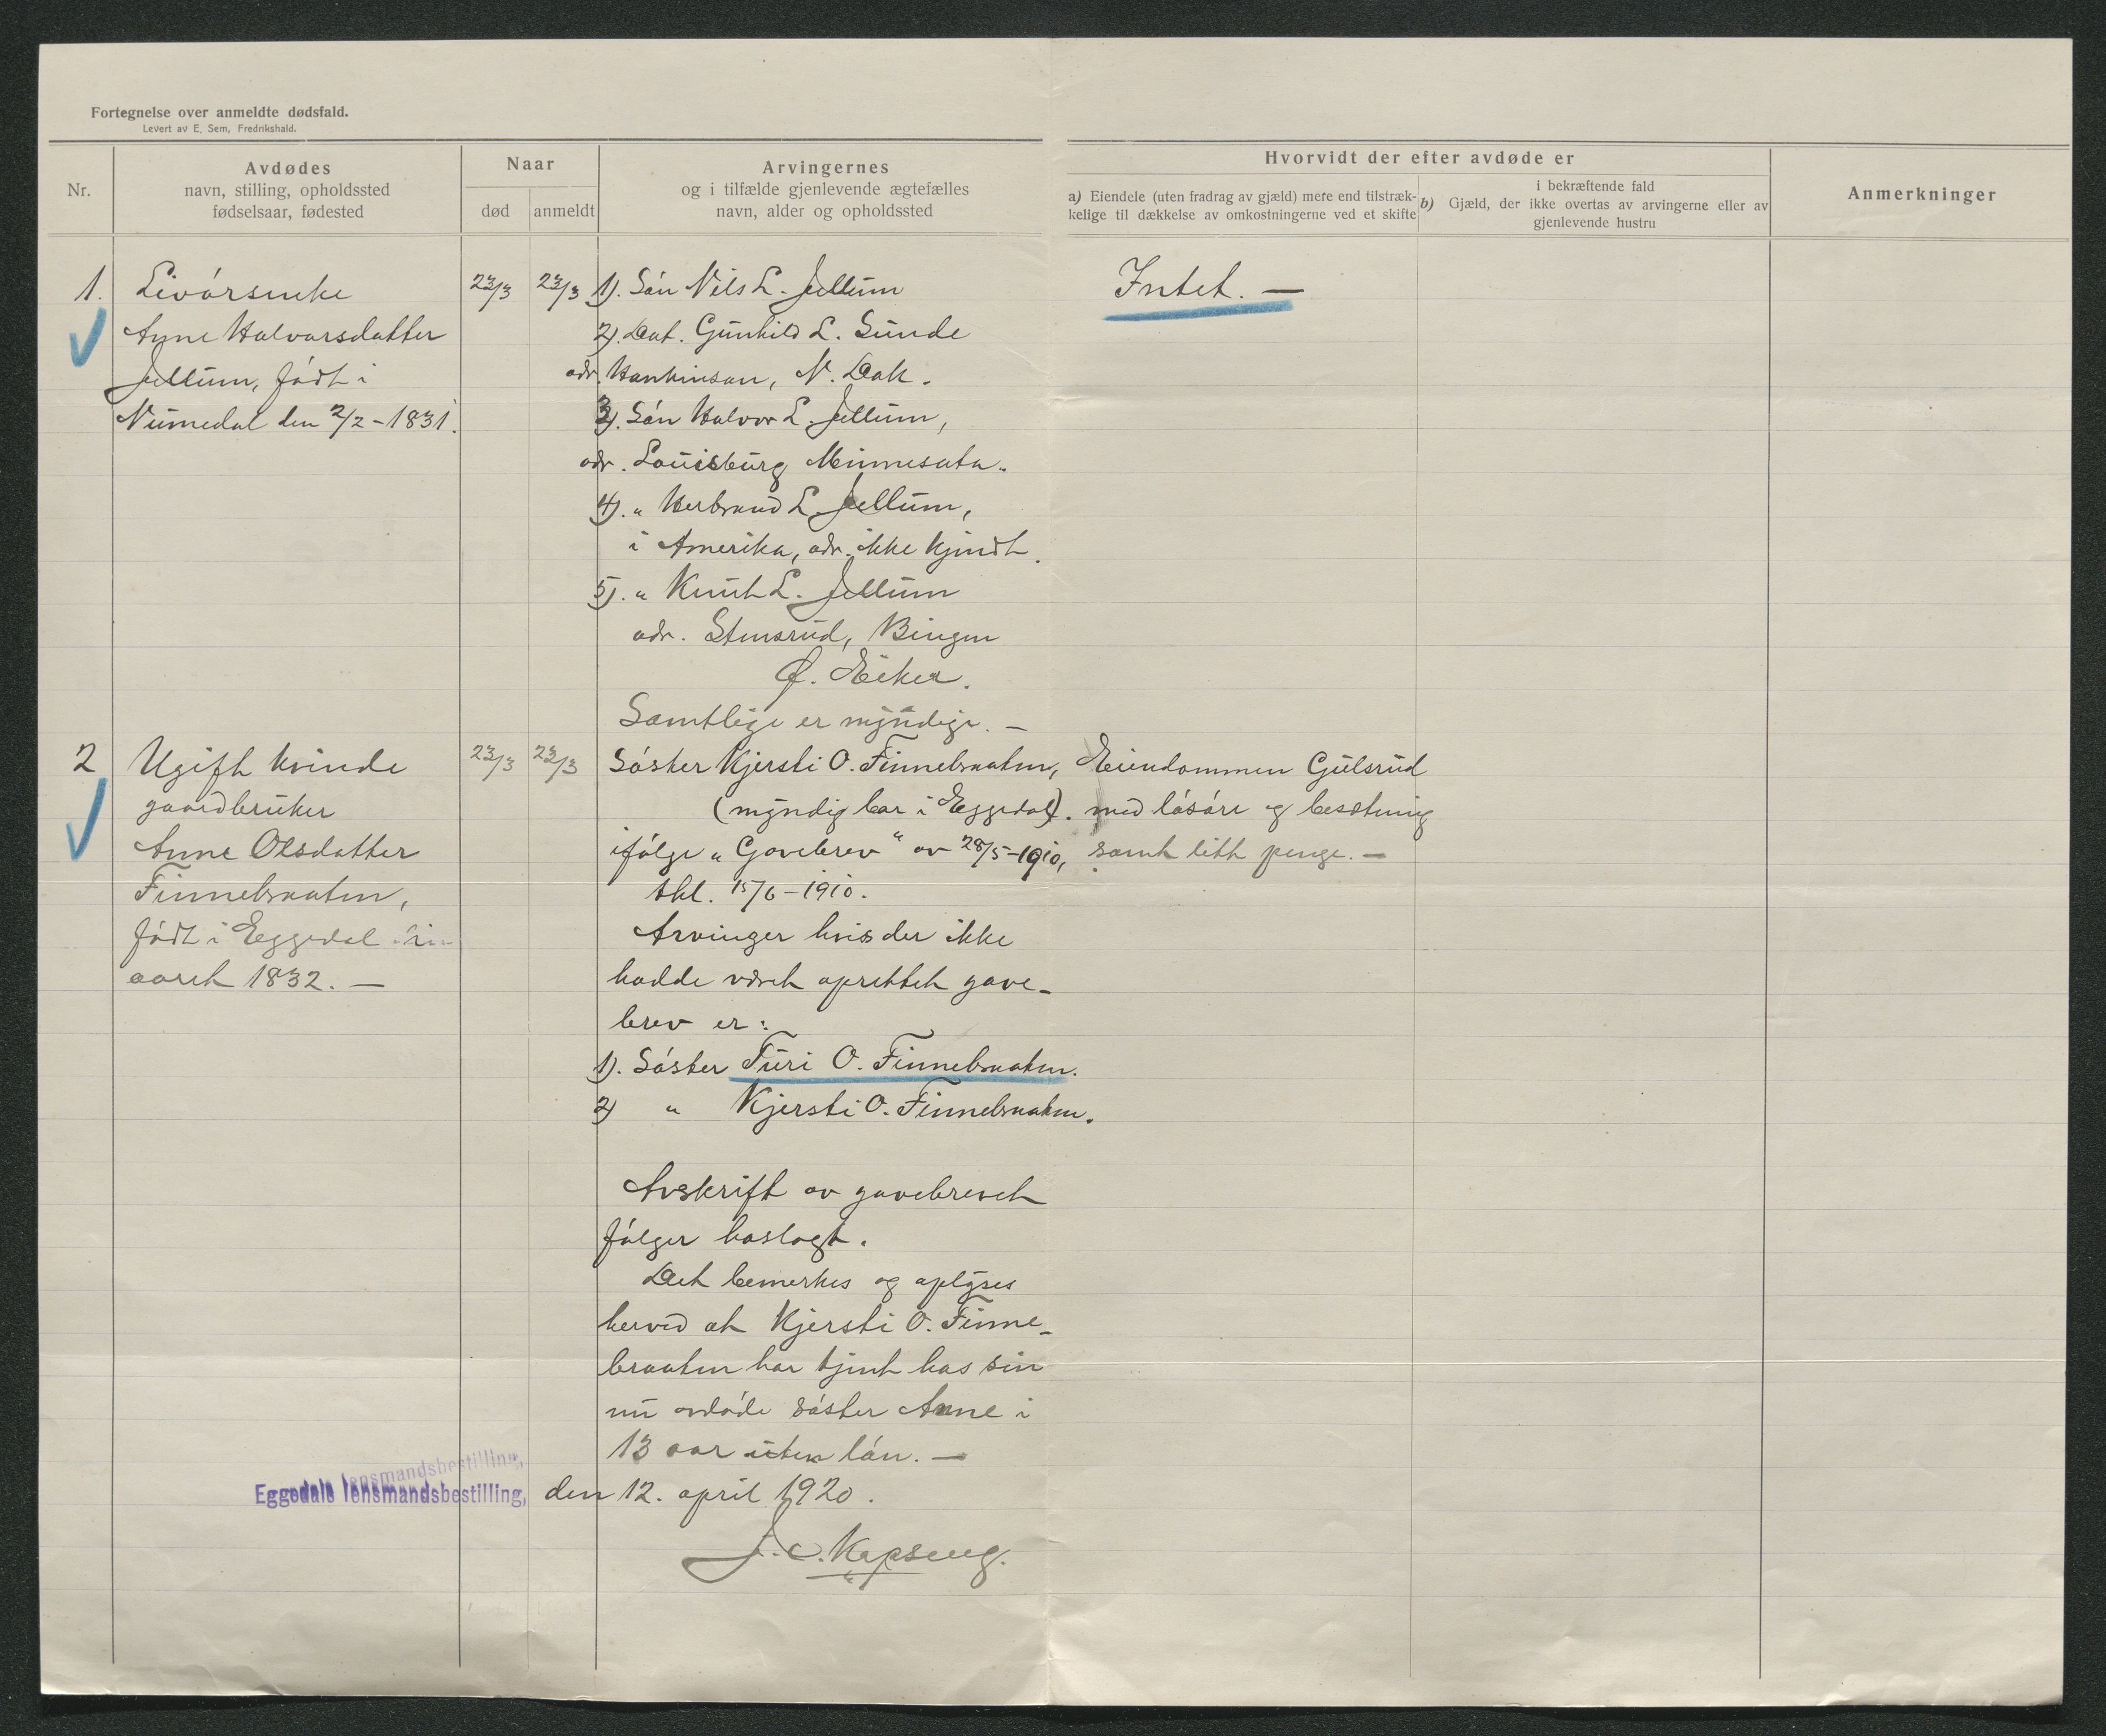 Fortegnelse over anmeldte dødsfald.
Levert av E. Sem, Fredrikshald.
Nr.
Avdødes
navn, stilling, opholdssted
fødselsaar, fødested
Naar
død
anmeldt
Arvingernes
og i tilfælde gjenlevende ægtefælles
navn, alder og opholdssted
Hvorvidt der efter avdøde er
a) Eiendele (uten fradrag av gjæld) mere end tilstræk-
kelige til dækkelse av omkostningerne ved et skifte
i bekræftende fald
b) Gjæld, der ikke overtas av arvingerne eller av
gjenlevende hustru
Anmerkninger
1.
Livørsenke
Anne Halvorsdatter
Jellum, født i
Numedal den 2/2-1831.
23/3
23/3
1). Søn Nils L. Jellum
2). Dat. Gunhild L. Sunde
adr. Hankinson, N. Dak.
3). Søn Halvor L. Jellum,
adr. Louisburg Minnesota.
4). " Herbrand L. Jellum,
i Amerika, adr. ikke kjendt.
5). " Knut L. Jellum
adr. Stensrud, Bingen
Ø. Eiker.
Samtlige er myndige. —
Intet. —
2
Ugift kvinde
gaardbruker
Anne Olsdatter
Finnebraaten,
født i Eggedal
aaret 1832. —
23/3
23/3
Søster Kjersti O. Finnebraaten,
(myndig bor i Eggedal).
ifølge „Gavebrev“ av 28/5-1910,
tkl. 15/6-1910.
Arvinger hvis der ikke
hadde vært oprettet gave-
brev er:
1). Søster Turi O. Finnebraaten.
2) " Kjersti O. Finnebraaten.
Avskrift av gavebrevet
følger vedlagt.
Det bemerkes og oplyses
herved at Kjersti O. Finne-
braaten har tjent hos sin
nu avdøde søster Anne i
13 aar uten løn. —
Eiendommen Gulsrud
med løsøre og besætning
samt litt penge. —
Eggedals lensmandsbestilling,
Eggedals lensmandsbestilling, den 12. april 1920.
J. C. Kopseng.